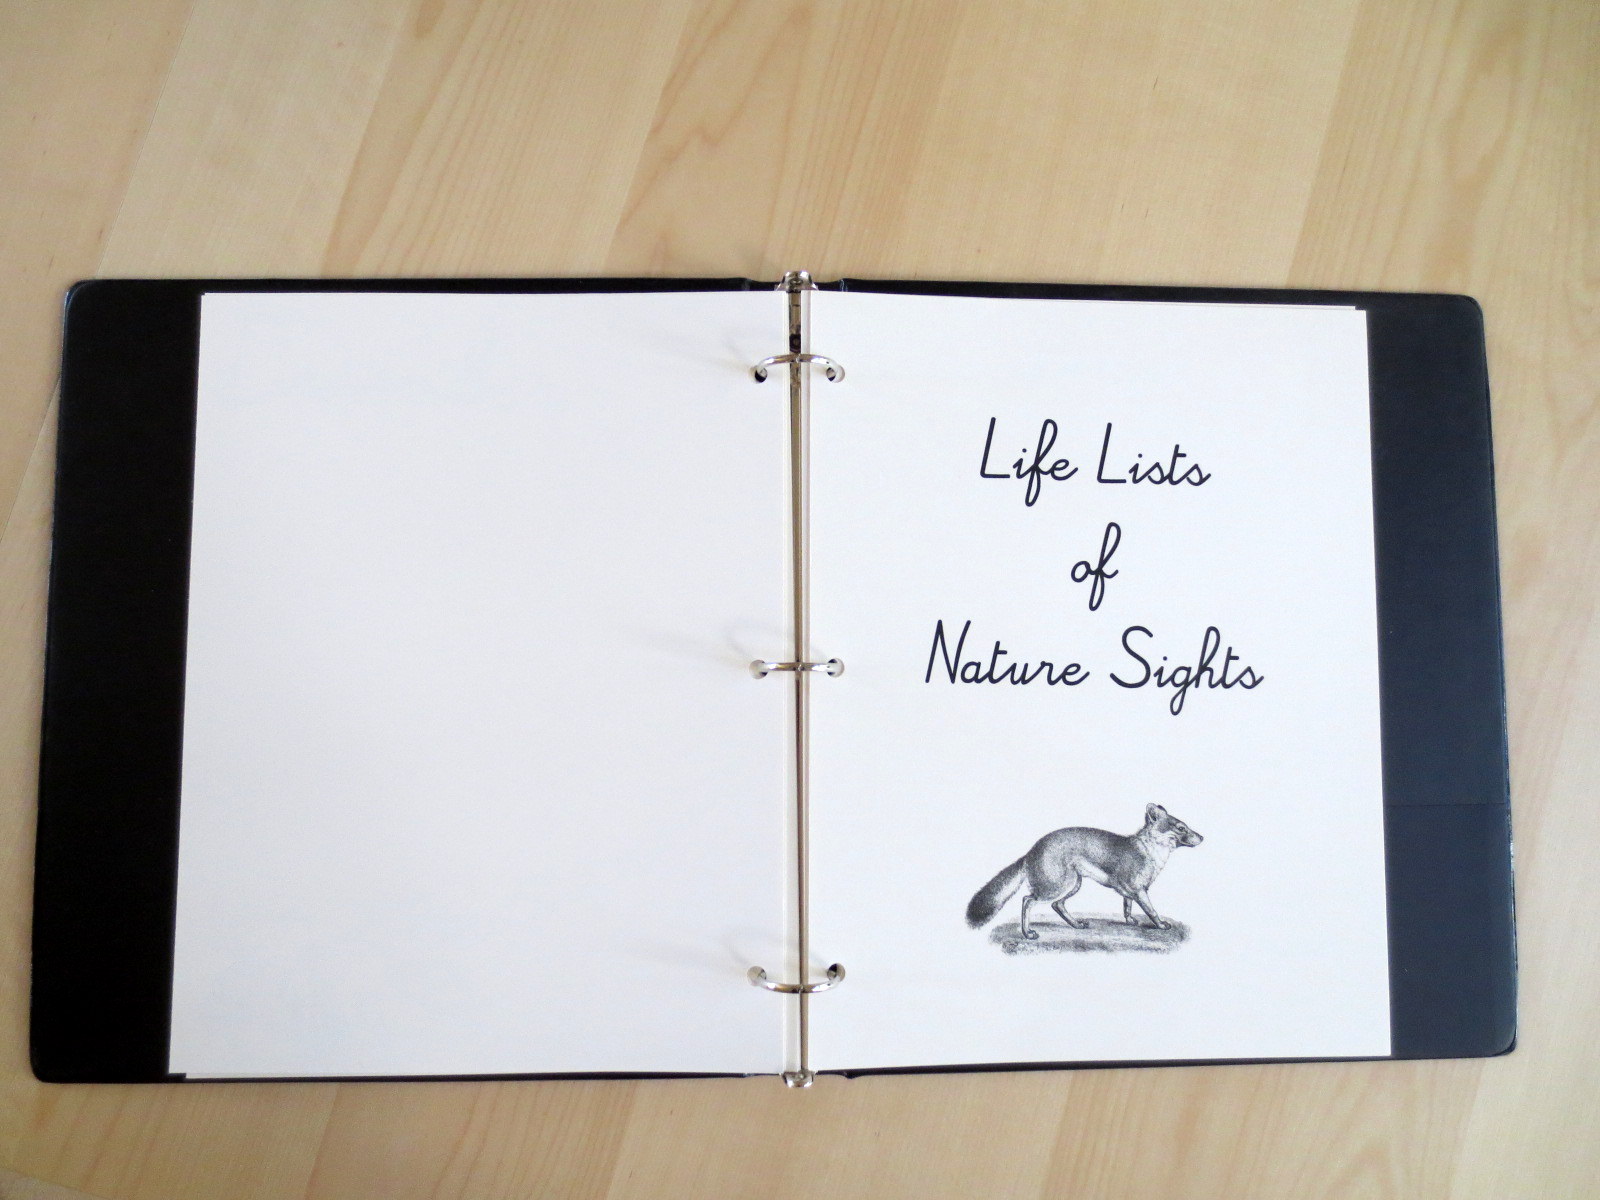 Life Lists
of
Nature Sights